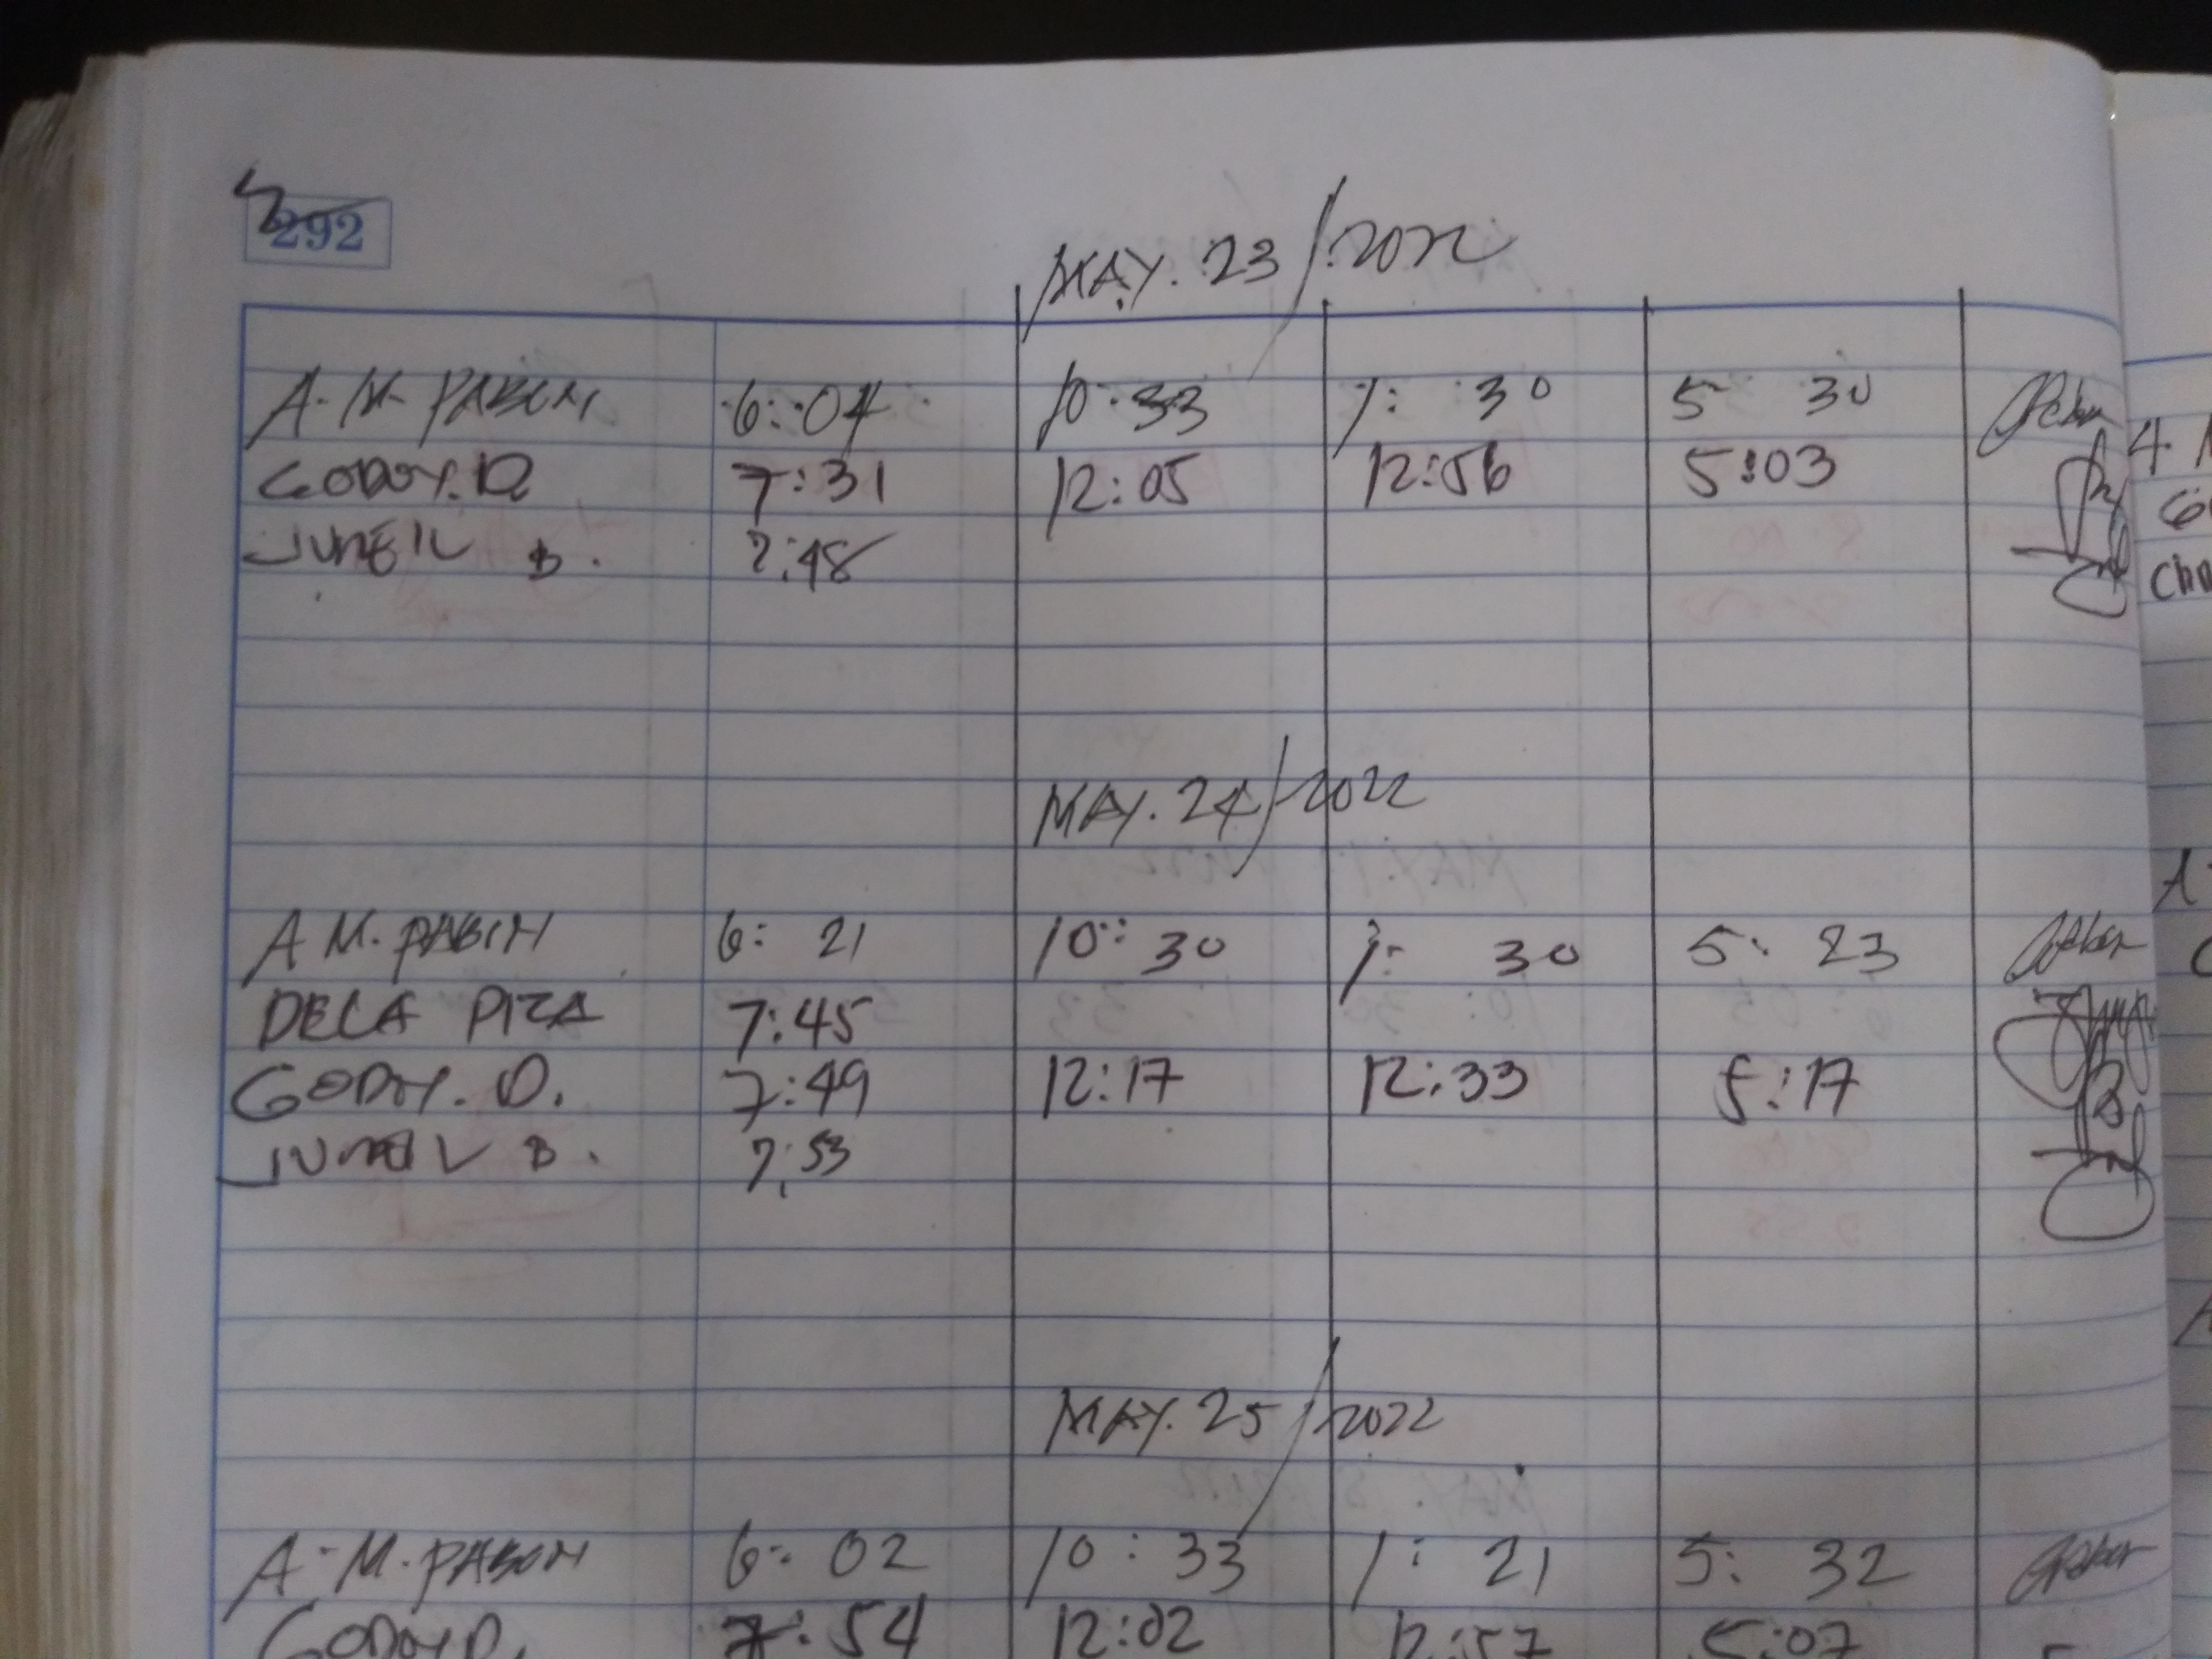 292
MAY. 23/2022
A. M. PABON 6:04 10:33 1:30 5 30
GODOY. D. 7:31 12:05 12:56 5:03
JUNEIL B. 7:48
MAY. 24/2022
A M. PABON 6: 21 10: 30 1: 30 5: 23
DELA PIZA 7:45
GODOY. D. 7:49 12:17 12:33 5:17
JUNEIL B. 7:53
MAY. 25/2022
A. M. PABON 6: 02 10: 33 1: 21 5: 32
GODOY D. 7:54 12:02 12:57 5:07